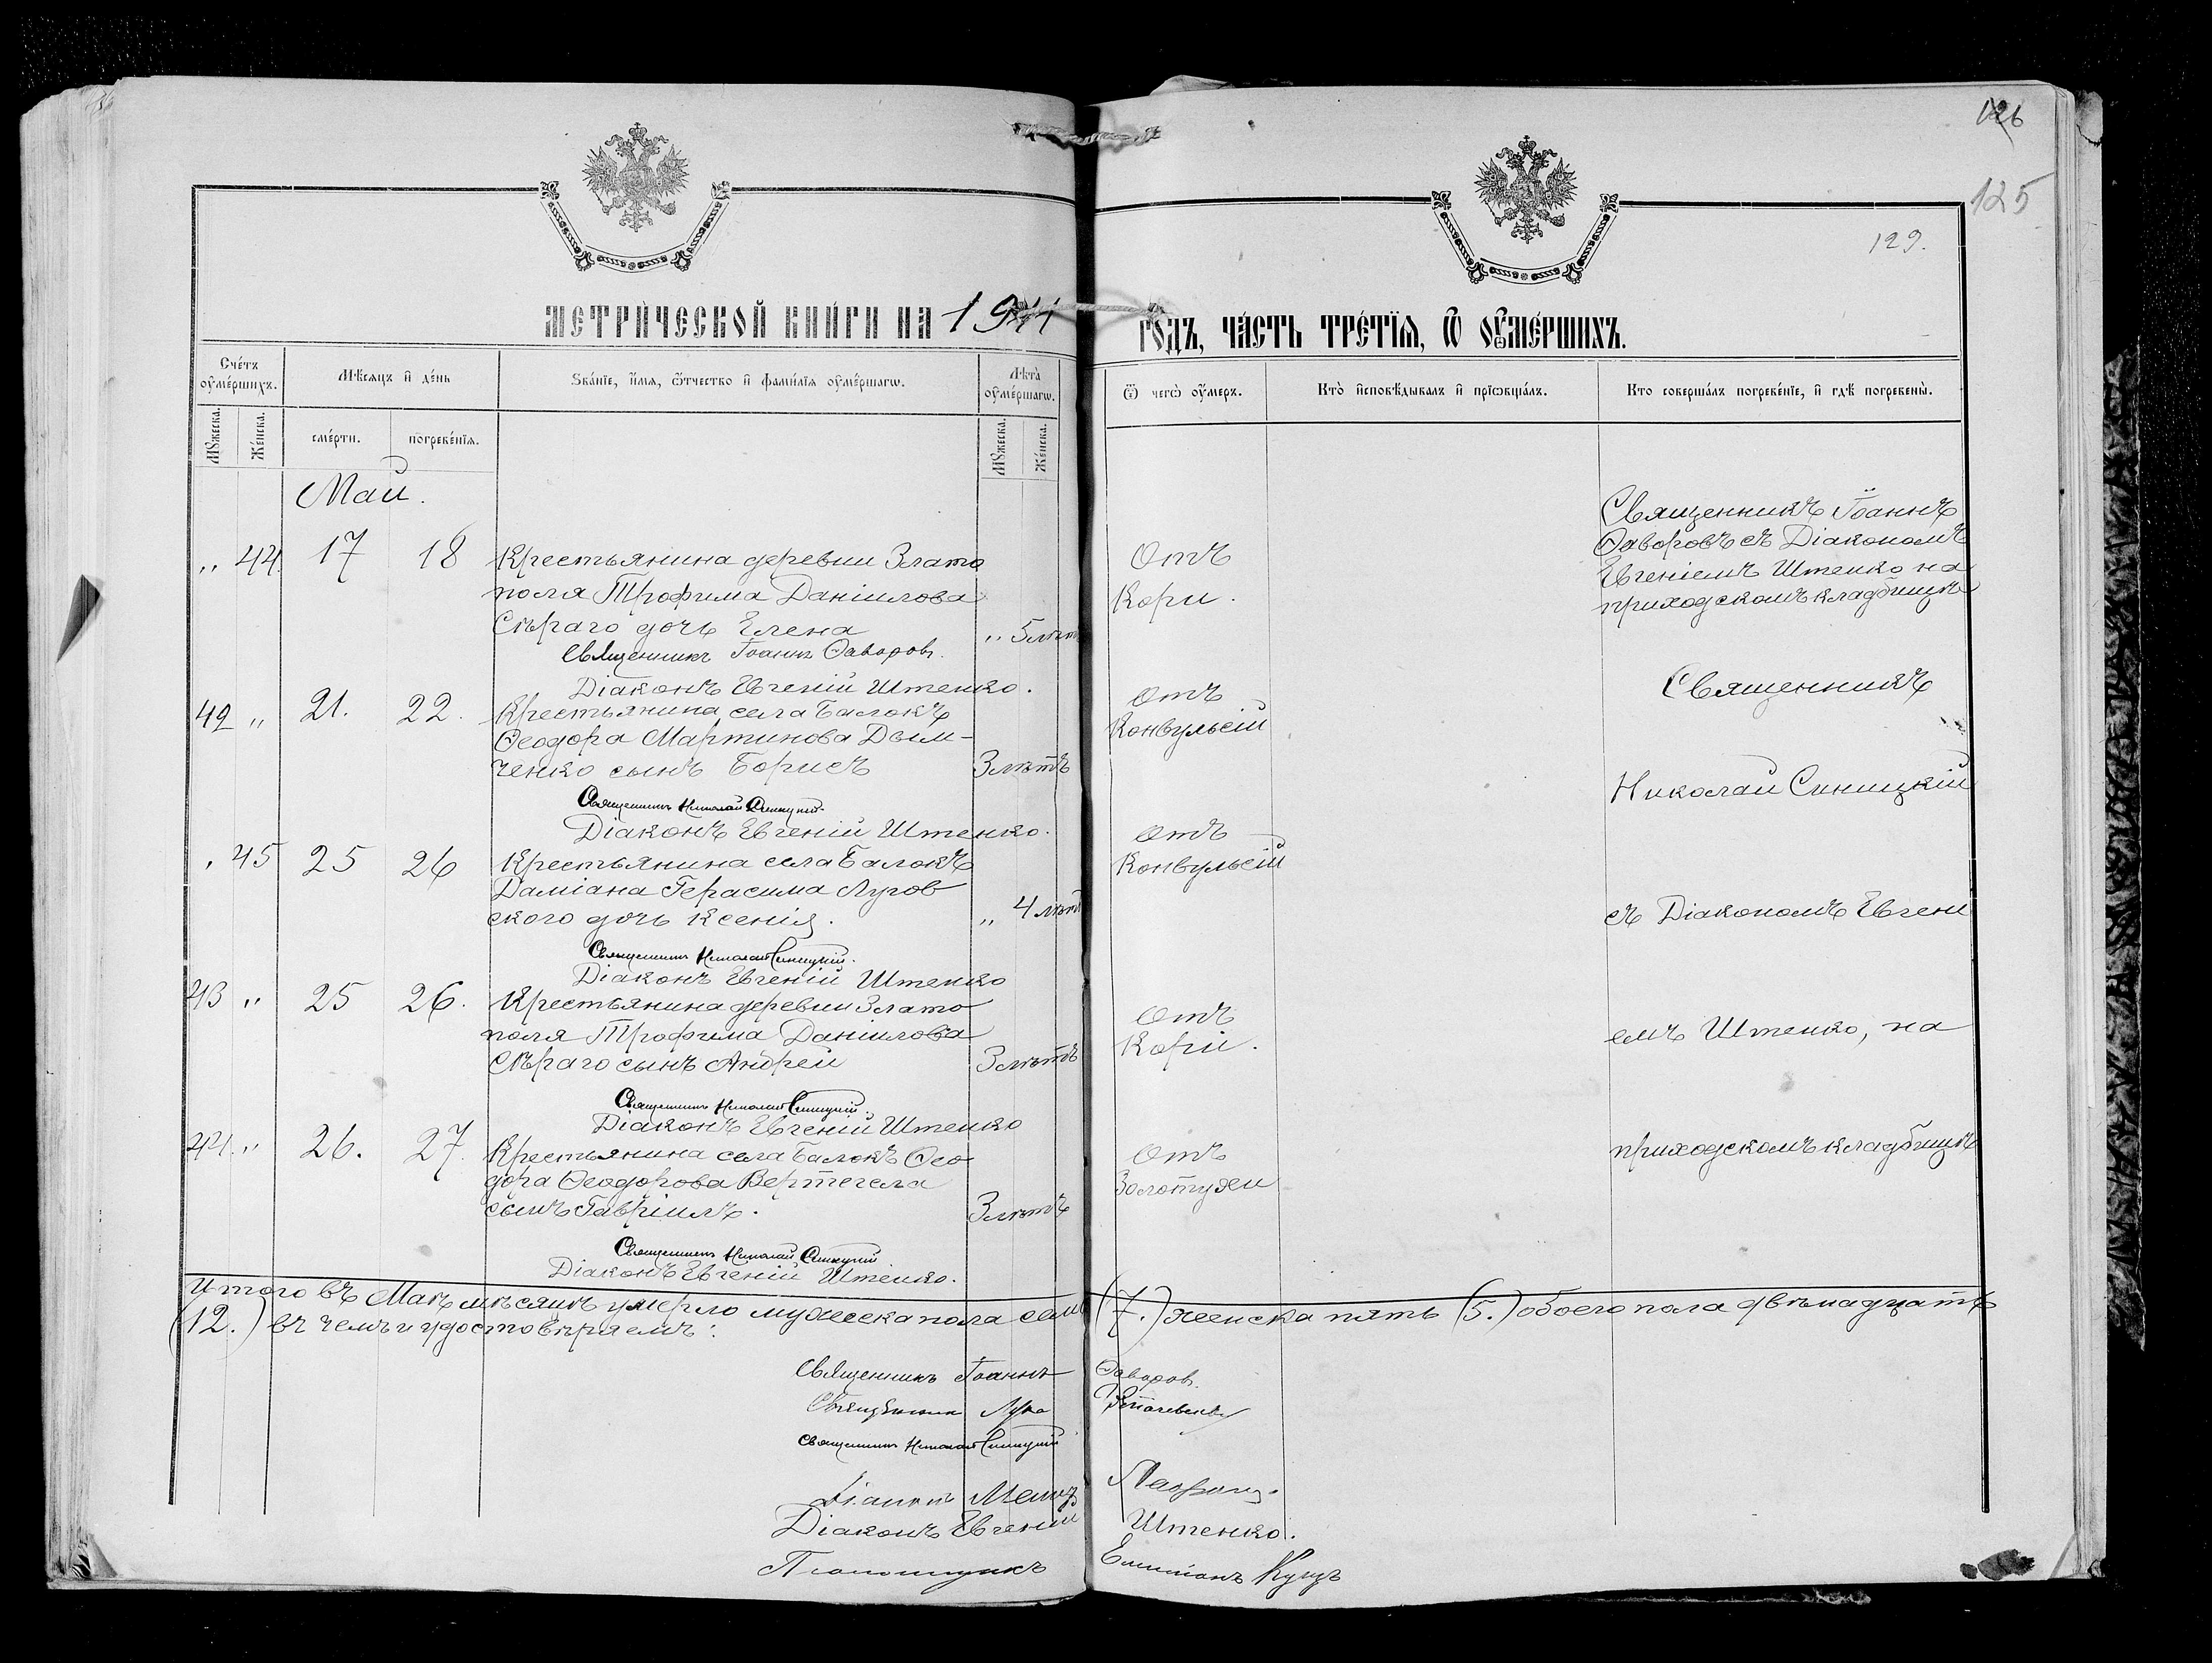 126
125
129.
МЕТРИЧЕСКОЙ КНИГИ НА 1911 ГОДЪ, ЧАСТЬ ТРЕТІЯ, Ѿ ОУМЕРШИХЪ.
Счетъ оумершихъ.
Мѣсяцъ и день
Званіе, имя, отчество и фамилія оумершагѡ.
Лѣта оумершагѡ.
Ѿ чегѡ оумеръ.
Кто исповѣдывалъ и пріѡбщалъ.
Кто совершалъ погребеніе, и гдѣ погребены.
Мужеска.
Женска.
смерти.
погребенія.
Мужеска.
Женска.
Май.
„ 44 17 18 Крестьянина деревни Злато
поля Трофима Даніилова
Сѣраго дочь Елена „ 5 лѣтъ
Отъ
Кори.
Священникъ Іоаннъ Ѳаворовъ.
Діаконъ Евгеній Штенко.
Священникъ Іоаннъ
Ѳаворовъ съ Діакономъ
Евгеніемъ Штенко на
приходскомъ кладбищѣ
42 „ 21. 22. Крестьянина села Балокъ
Ѳеодора Мартинова Дым-
ченко сынъ Борисъ 3 лѣтъ
отъ
Конвульсій
Священникъ Николай Синицкій.
Діаконъ Евгеній Штенко.
Священникъ
Николай Синицкій
„ 45 25 26 Крестьянина села Балокъ
Даміана Герасима Лугов
ского дочь Ксенія. „ 4 лѣтъ
отъ
Конвульсій
Священникъ Николай Синицкій.
Діаконъ Евгеній Штенко
съ Діакономъ Евгені
43 „ 25 26. Крестьянина деревни Злато
поля Трофима Даніилова
Сѣраго сынъ Андрей 3 лѣтъ
Отъ
Корій.
Священникъ Николай Синицкій.
Діаконъ Евгеній Штенко
емъ Штенко, на
44. „ 26. 27. Крестьянина села Балокъ Ѳео
дора Ѳеодорова Вертегела
сынъ Гавріилъ. 3 лѣтъ
Отъ
Золотухи
Священникъ Николай Синицкій
Діаконъ Евгеній Штенко.
приходскомъ кладбищѣ
Итого въ Маѣ мѣсяцѣ умерло мужеска пола семь (7.) женска пять (5.) обоего пола двѣнадцать
(12.) въ чемъ и удостовѣряемъ:
Священникъ Іоаннъ Ѳаворовъ.
Священникъ Лука
Священникъ Николай Синицкій
Діаконъ
Діаконъ Евгеній Штенко.
Псаломщикъ Емиліанъ Куцъ